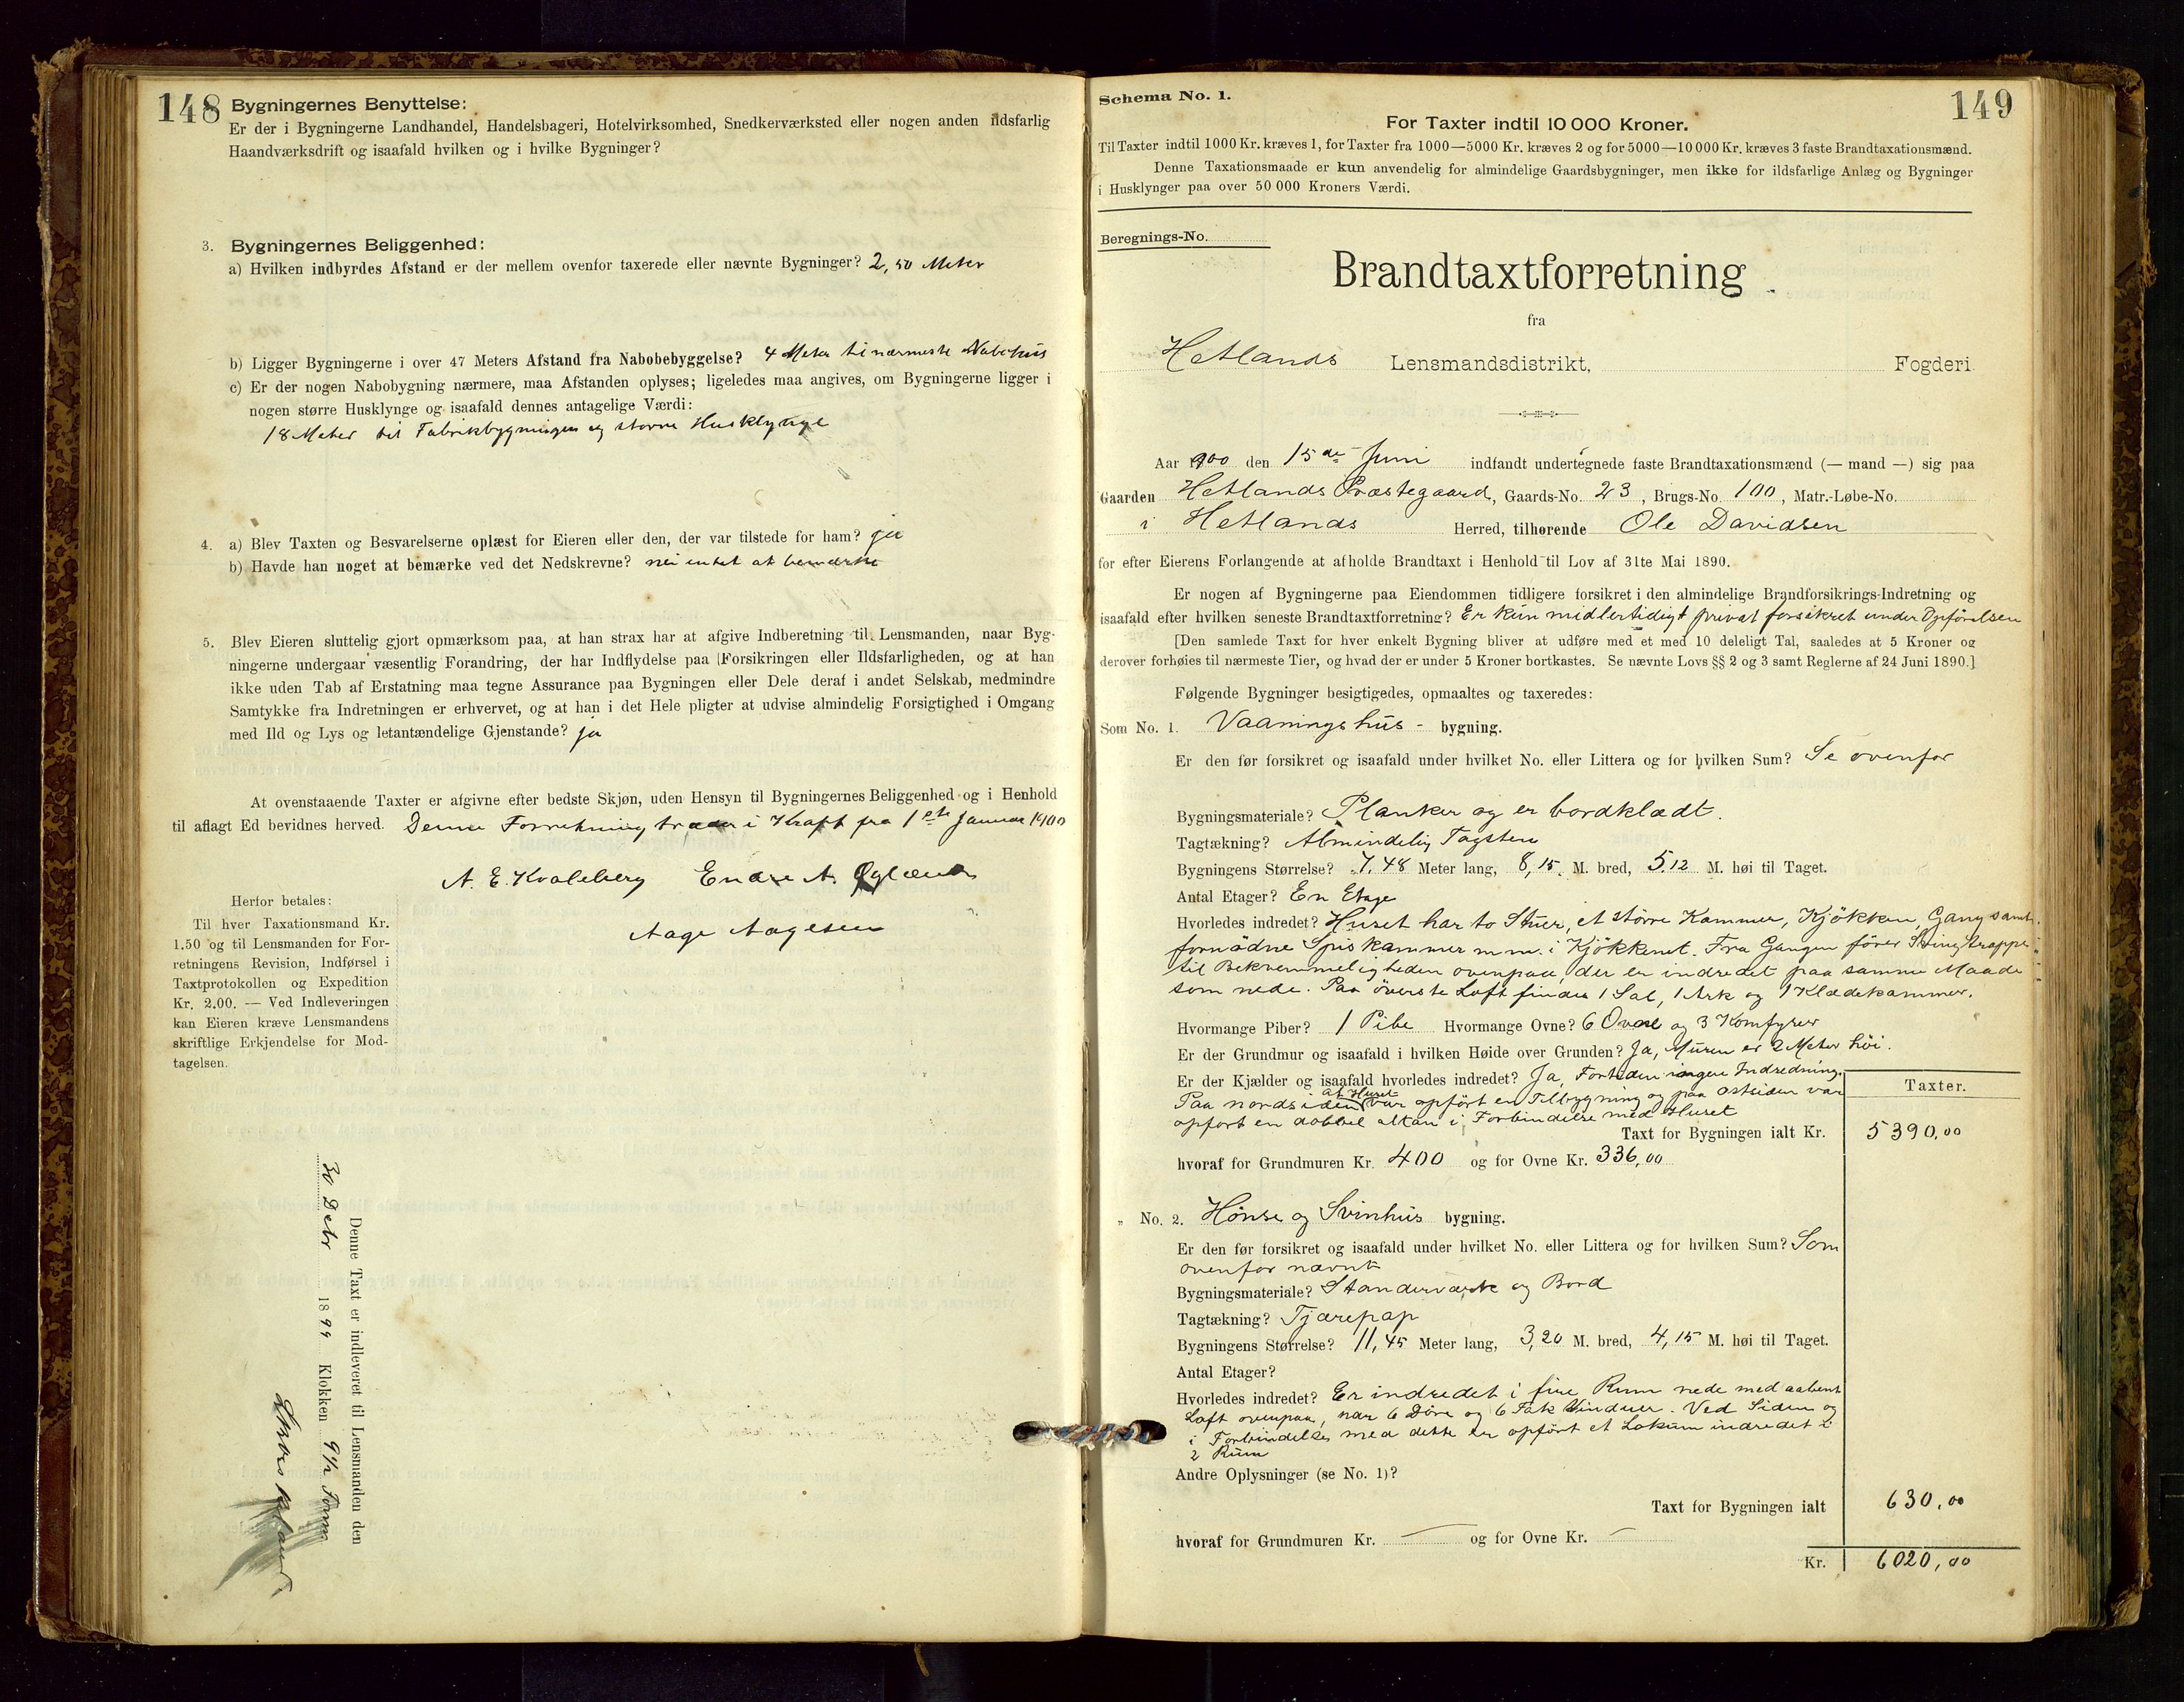 148
Bygningernes Benyttelse:
Er der i Bygningerne Landhandel, Handelsbageri, Hotelvirksomhed, Snedkerværksted eller nogen anden ildsfarlig
Haandværksdrift og isaafald hvilken og i hvilke Bygninger?
3. Bygningernes Beliggenhed:
a) Hvilken indbyrdes Afstand er der mellem ovenfor taxerede eller nævnte Bygninger? 2,50 Meter
b) Ligger Bygningerne i over 47 Meters Afstand fra Nabobebyggelse? 4 Meter til nærmeste Nabohus
c) Er der nogen Nabobygning nærmere, maa Afstanden oplyses; ligeledes maa angives, om Bygningerne ligger i
nogen større Husklynge og isaafald dennes antagelige Værdi:
18 Meter til Fabrikbygningen og større Husklynge
4. a) Blev Taxten og Besvarelserne oplæst for Eieren eller den, der var tilstede for ham? ja
b) Havde han noget at bemærke ved det Nedskrevne? nei intet at bemærke
5. Blev Eieren sluttelig gjort opmærksom paa, at han strax har at afgive Indberetning til Lensmanden, naar Byg-
ningerne undergaar væsentlig Forandring, der har Indflydelse paa Forsikringen eller Ildsfarligheden, og at han
ikke uden Tab af Erstatning maa tegne Assurance paa Bygningen eller Dele deraf i andet Selskab, medmindre
Samtykke fra Indretningen er erhvervet, og at han i det Hele pligter at udvise almindelig Forsigtighed i Omgang
med Ild og Lys og letantændelige Gjenstande? ja
At ovenstaaende Taxter er afgivne efter bedste Skjøn, uden Hensyn til Bygningernes Beliggenhed og i Henhold
til aflagt Ed bevidnes herved. Denne Forretning træder i Kraft fra 1ste Januar 1900
A. E. Kvaleberg Endre A. Øglænd
Aage Aagesen
Herfor betales:
Til hver Taxationsmand Kr.
1.50 og til Lensmanden for For-
retningens Revision, Indførsel i
Taxtprotokollen og Expedition
Kr. 2.00. — Ved Indleveringen
kan Eieren kræve Lensmandens
skriftlige Erkjendelse for Mod-
tagelsen.
Denne Taxt er indleveret til Lensmanden den
30 Debr 1899 Klokken 9 1/2 Form
149
Schema No. 1.
For Taxter indtil 10 000 Kroner.
Til Taxter indtil 1000 Kr. kræves 1, for Taxter fra 1000—5000 Kr. kræves 2 og for 5000—10 000 Kr. kræves 3 faste Brandtaxationsmænd.
Denne Taxationsmaade er kun anvendelig for almindelige Gaardsbygninger, men ikke for ildsfarlige Anlæg og Bygninger
i Husklynger paa over 50 000 Kroners Værdi.
Beregnings-No.
Brandtaxtforretning
fra
Hetlands Lensmandsdistrikt, Fogderi
Aar 1900 den 15de Juni indfandt undertegnede faste Brandtaxationsmænd (— mand —) sig paa
Gaarden Hetlands Præstegaard, Gaards-No. 23, Brugs-No. 100, Matr.-Løbe-No.
i Hetlands Herred, tilhørende Ole Davidsen
for efter Eierens Forlangende at afholde Brandtaxt i Henhold til Lov af 31te Mai 1890.
Er nogen af Bygningerne paa Eiendommen tidligere forsikret i den almindelige Brandforsikrings-Indretning og
isaafald efter hvilken seneste Brandtaxtforretning? Er kun midlertidigt privat forsikret under Opførelsen
[Den samlede Taxt for hver enkelt Bygning bliver at udføre med et med 10 deleligt Tal, saaledes at 5 Kroner og
derover forhøies til nærmeste Tier, og hvad der er under 5 Kroner bortkastes. Se nævnte Lovs §§ 2 og 3 samt Reglerne af 24 Juni 1890.]
Følgende Bygninger besigtigedes, opmaaltes og taxeredes:
Som No. 1. Vaaningshus - bygning.
Er den før forsikret og isaafald under hvilket No. eller Littera og for hvilken Sum? Se ovenfor
Bygningsmateriale? Planker og er bordklædt.
Tagtækning? Almindelig Tagsten
Bygningens Størrelse? 7,48 Meter lang, 8,15 M. bred, 5,12 M. høi til Taget.
Antal Etager? En Etage
Hvorledes indredet? Huset har to Stuer, et större Kammer, Kjökken, Gang samt
fornödne Spiskammer m.m. i Kjökkenet. Fra Gangen förer Svingtrappe
til Bekvemmeligheden ovenpaa, der er indredet paa samme Maade
som nede. Paa överste Loft findes 1 Sal, 1 Ark og 1 Klædekammer.
Hvormange Piber? 1 Pibe Hvormange Ovne? 6 Ovne og 3 Komfyrer
Er der Grundmur og isaafald i hvilken Høide over Grunden? Ja, Muren er 2 Meter höi.
Er der Kjælder og isaafald hvorledes indredet? Ja, Fortiden ingen Indredning.
Paa nordsiden af Huset var opfört en Tilbygning og paa östsiden var
opfört en dobbel altan i Forbindelse med Huset
Taxter.
Taxt for Bygningen ialt Kr. 5390,00
hvoraf for Grundmuren Kr. 400 og for Ovne Kr. 336,00
" No. 2. Hönse og Svinhus bygning.
Er den før forsikret og isaafald under hvilket No. eller Littera og for hvilken Sum? Som
ovenfor nævnt
Bygningsmateriale? Standerværk og Bord
Tagtækning? Tjærepap
Bygningens Størrelse? 11,45 Meter lang, 3,20 M. bred, 4,15 M. høi til Taget.
Antal Etager?
Hvorledes indredet? Er indredet i fire Rum nede med aabent
Loft ovenpaa, har 6 Döre og 6 Fak Vinduer. Ved Siden og
i Forbindelse med dette er opfört et Lokum indredet i
2 Rum
Andre Oplysninger (se No. 1)?
Taxt for Bygningen ialt 630,00
hvoraf for Grundmuren Kr. — og for Ovne Kr. —
Kr. 6020,00